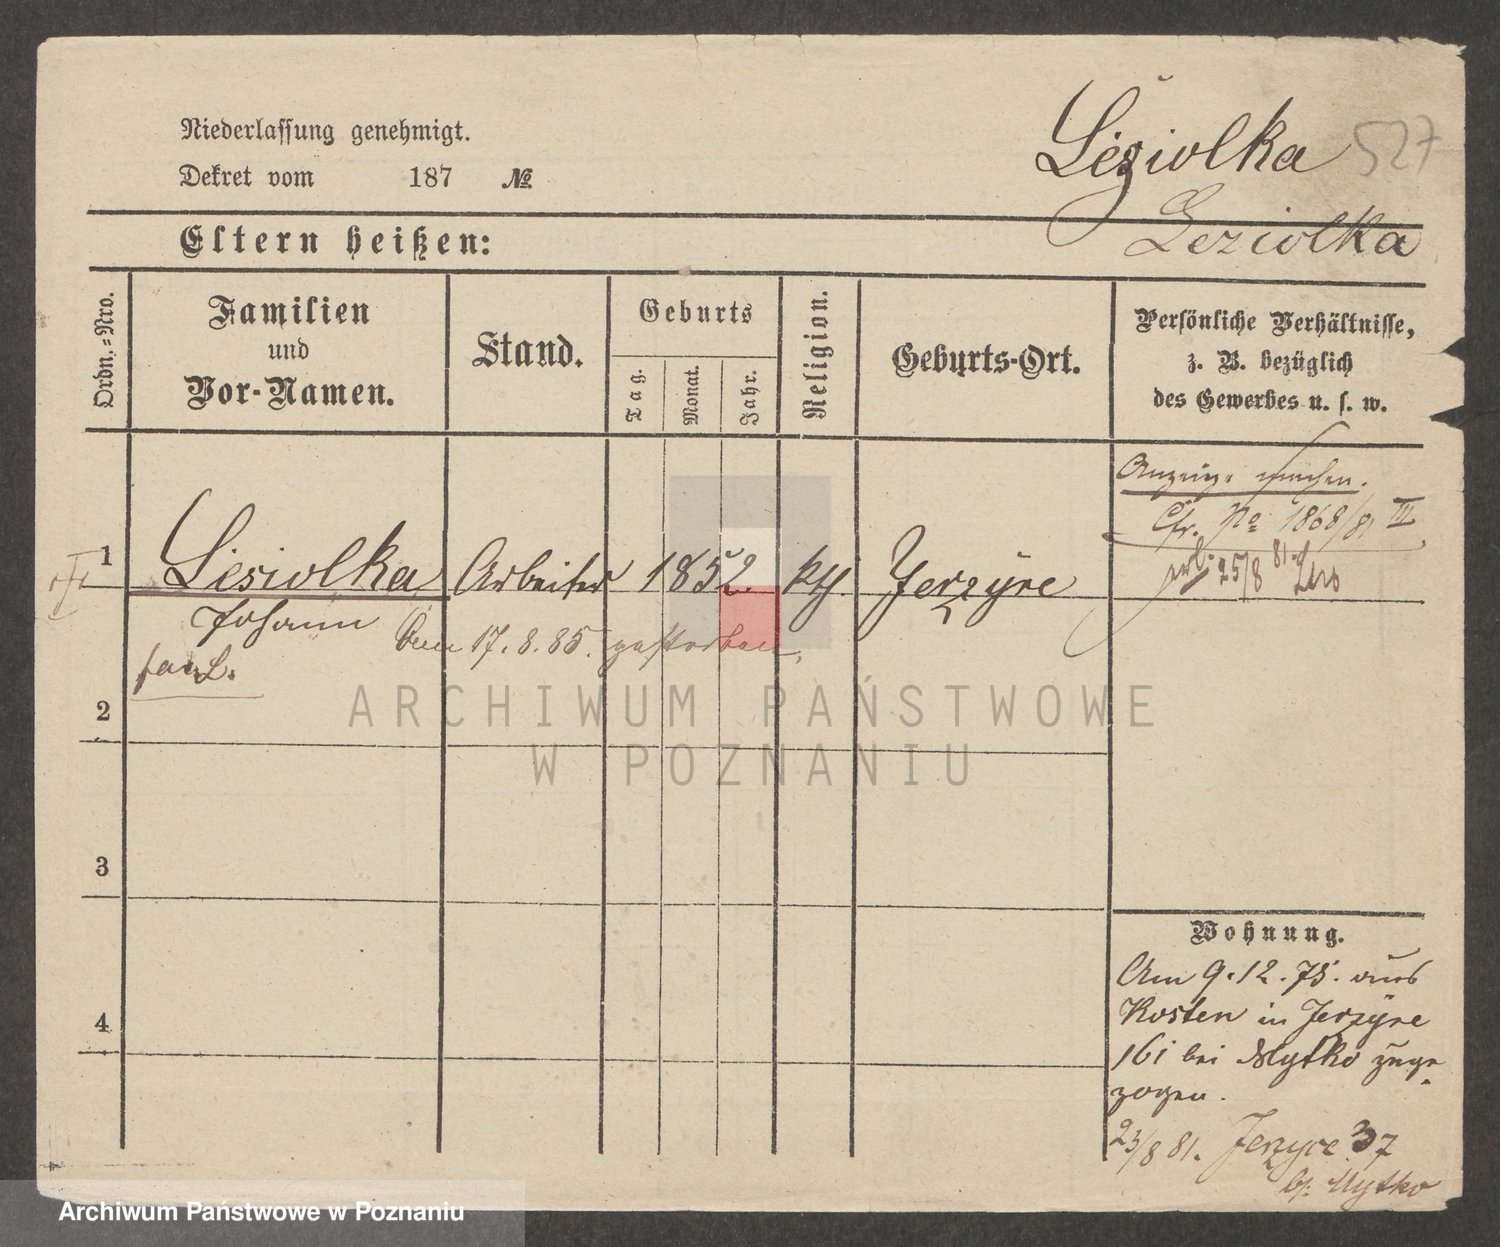 Niederlassung genehmigt.
Dekret vom 187 №
Leziolka 527
Leziolka
Eltern heißen:
Ordn.-Nro.
Familien
und
Vor-Namen.
Stand.
Geburts
Tag.
Monat.
Jahr.
Religion.
Geburts-Ort.
Persönliche Verhältnisse,
z. B. bezüglich
des Gewerbes u. s. w.
Anzeige machen.
Cfr. No 1868/81 III
25/8 81.
1 Lesiolka Arbeiter 1852. kth Jerzyce
Johann
17. 8. 85. gestorben.
2
3
4
ARCHIWUM PAŃSTWOWE
W POZNANIU
Wohnung.
Am 9.12.75. aus
Kosten in Jerzyce
161 bei Mytko zuge
zogen.
23/8 81. Jerzyce 37
b/ Mytko
Archiwum Państwowe w Poznaniu